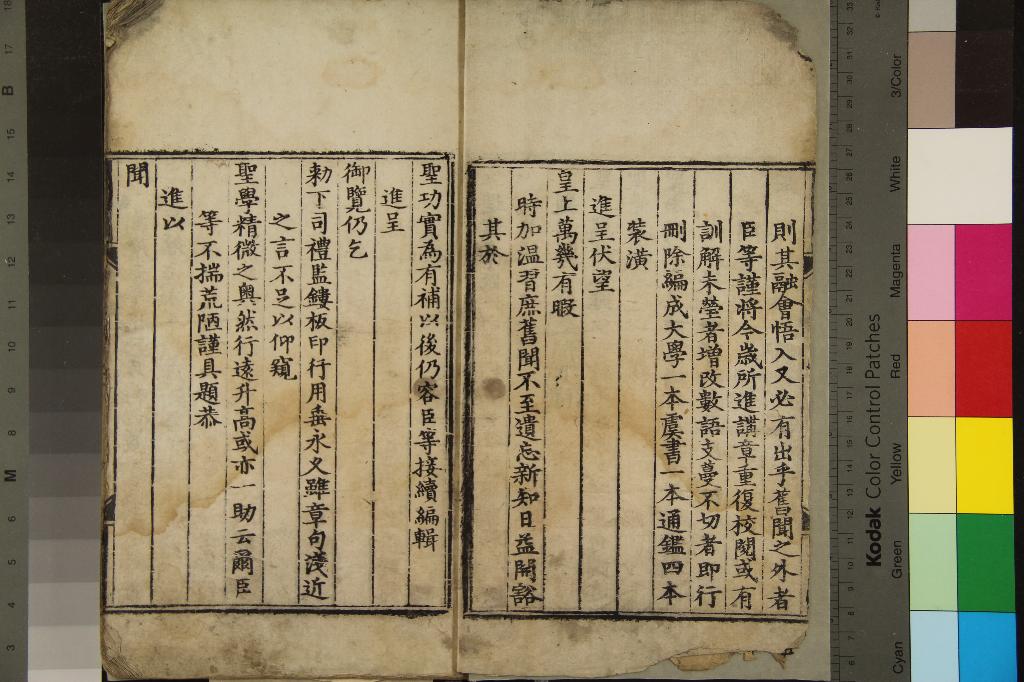 則其融會悟入又必有出乎舊聞之外者
臣等謹將今歲所進講章重復校閱或有
訓解未瑩者增改數語支蔓不切者即行
刪除編成大學一本虞書一本通鑑四本
裝潢
進呈伏望
皇上萬幾有暇
時加溫習庶舊聞不至遺忘新知日益開豁
其於
聖功實為有補以後仍容臣等接續編輯
進呈
御覽仍乞
勑下司禮監鏤板印行用垂永久雖章句淺近
之言不足以仰窺
聖學精微之奧然行遠升高或亦一助云爾臣
等不揣荒陋謹具題恭
進以
聞
Kodak Color Control Patches
Cyan
Green
Yellow
Red
Magenta
White
3/Color
18
17
B
15
14
13
12
11
10
9
8
M
6
5
4
3